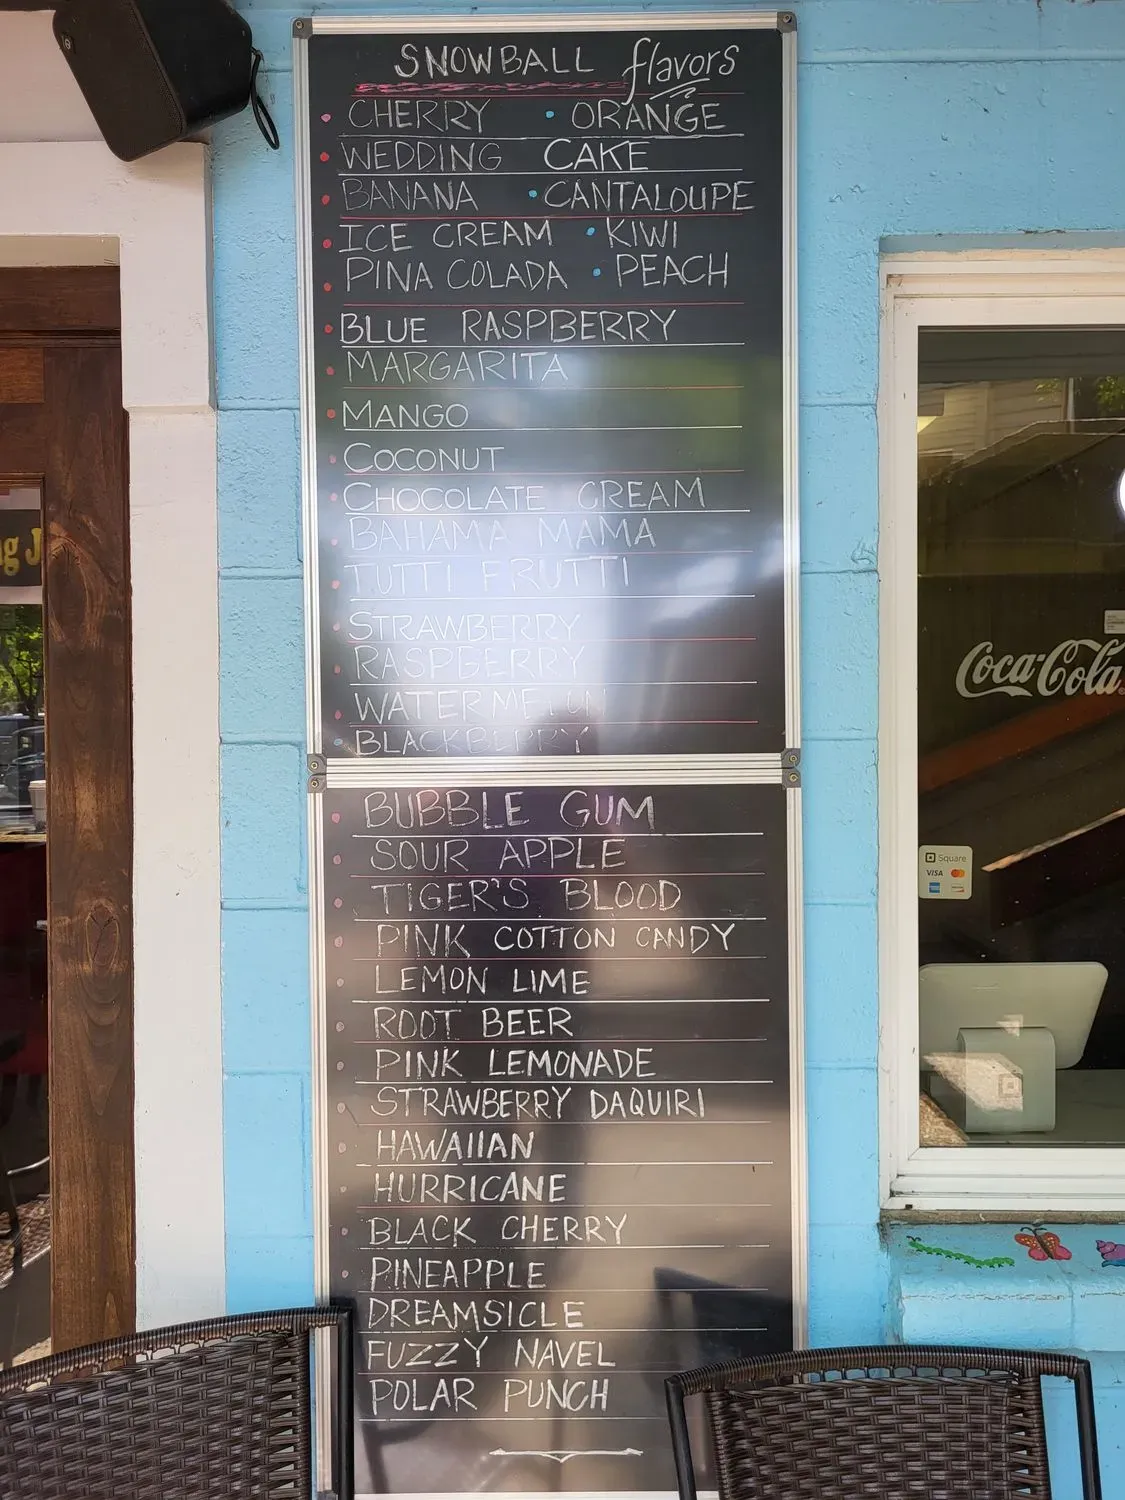 SNOWBALL flavors
• CHERRY • ORANGE
• WEDDING CAKE
• BANANA • CANTALOUPE
• ICE CREAM • KIWI
• PINA COLADA • PEACH
• BLUE RASPBERRY
• MARGARITA
• MANGO
• COCONUT
• CHOCOLATE CREAM
• BAHAMA MAMA
• TUTTI FRUTTI
• STRAWBERRY
• RASPBERRY
• WATERMELON
• BLACKBERRY
• BUBBLE GUM
• SOUR APPLE
• TIGER'S BLOOD
• PINK COTTON CANDY
• LEMON LIME
• ROOT BEER
• PINK LEMONADE
• STRAWBERRY DAQUIRI
• HAWAIIAN
• HURRICANE
• BLACK CHERRY
• PINEAPPLE
DREAMSICLE
FUZZY NAVEL
POLAR PUNCH
Coca-Cola
Square
VISA